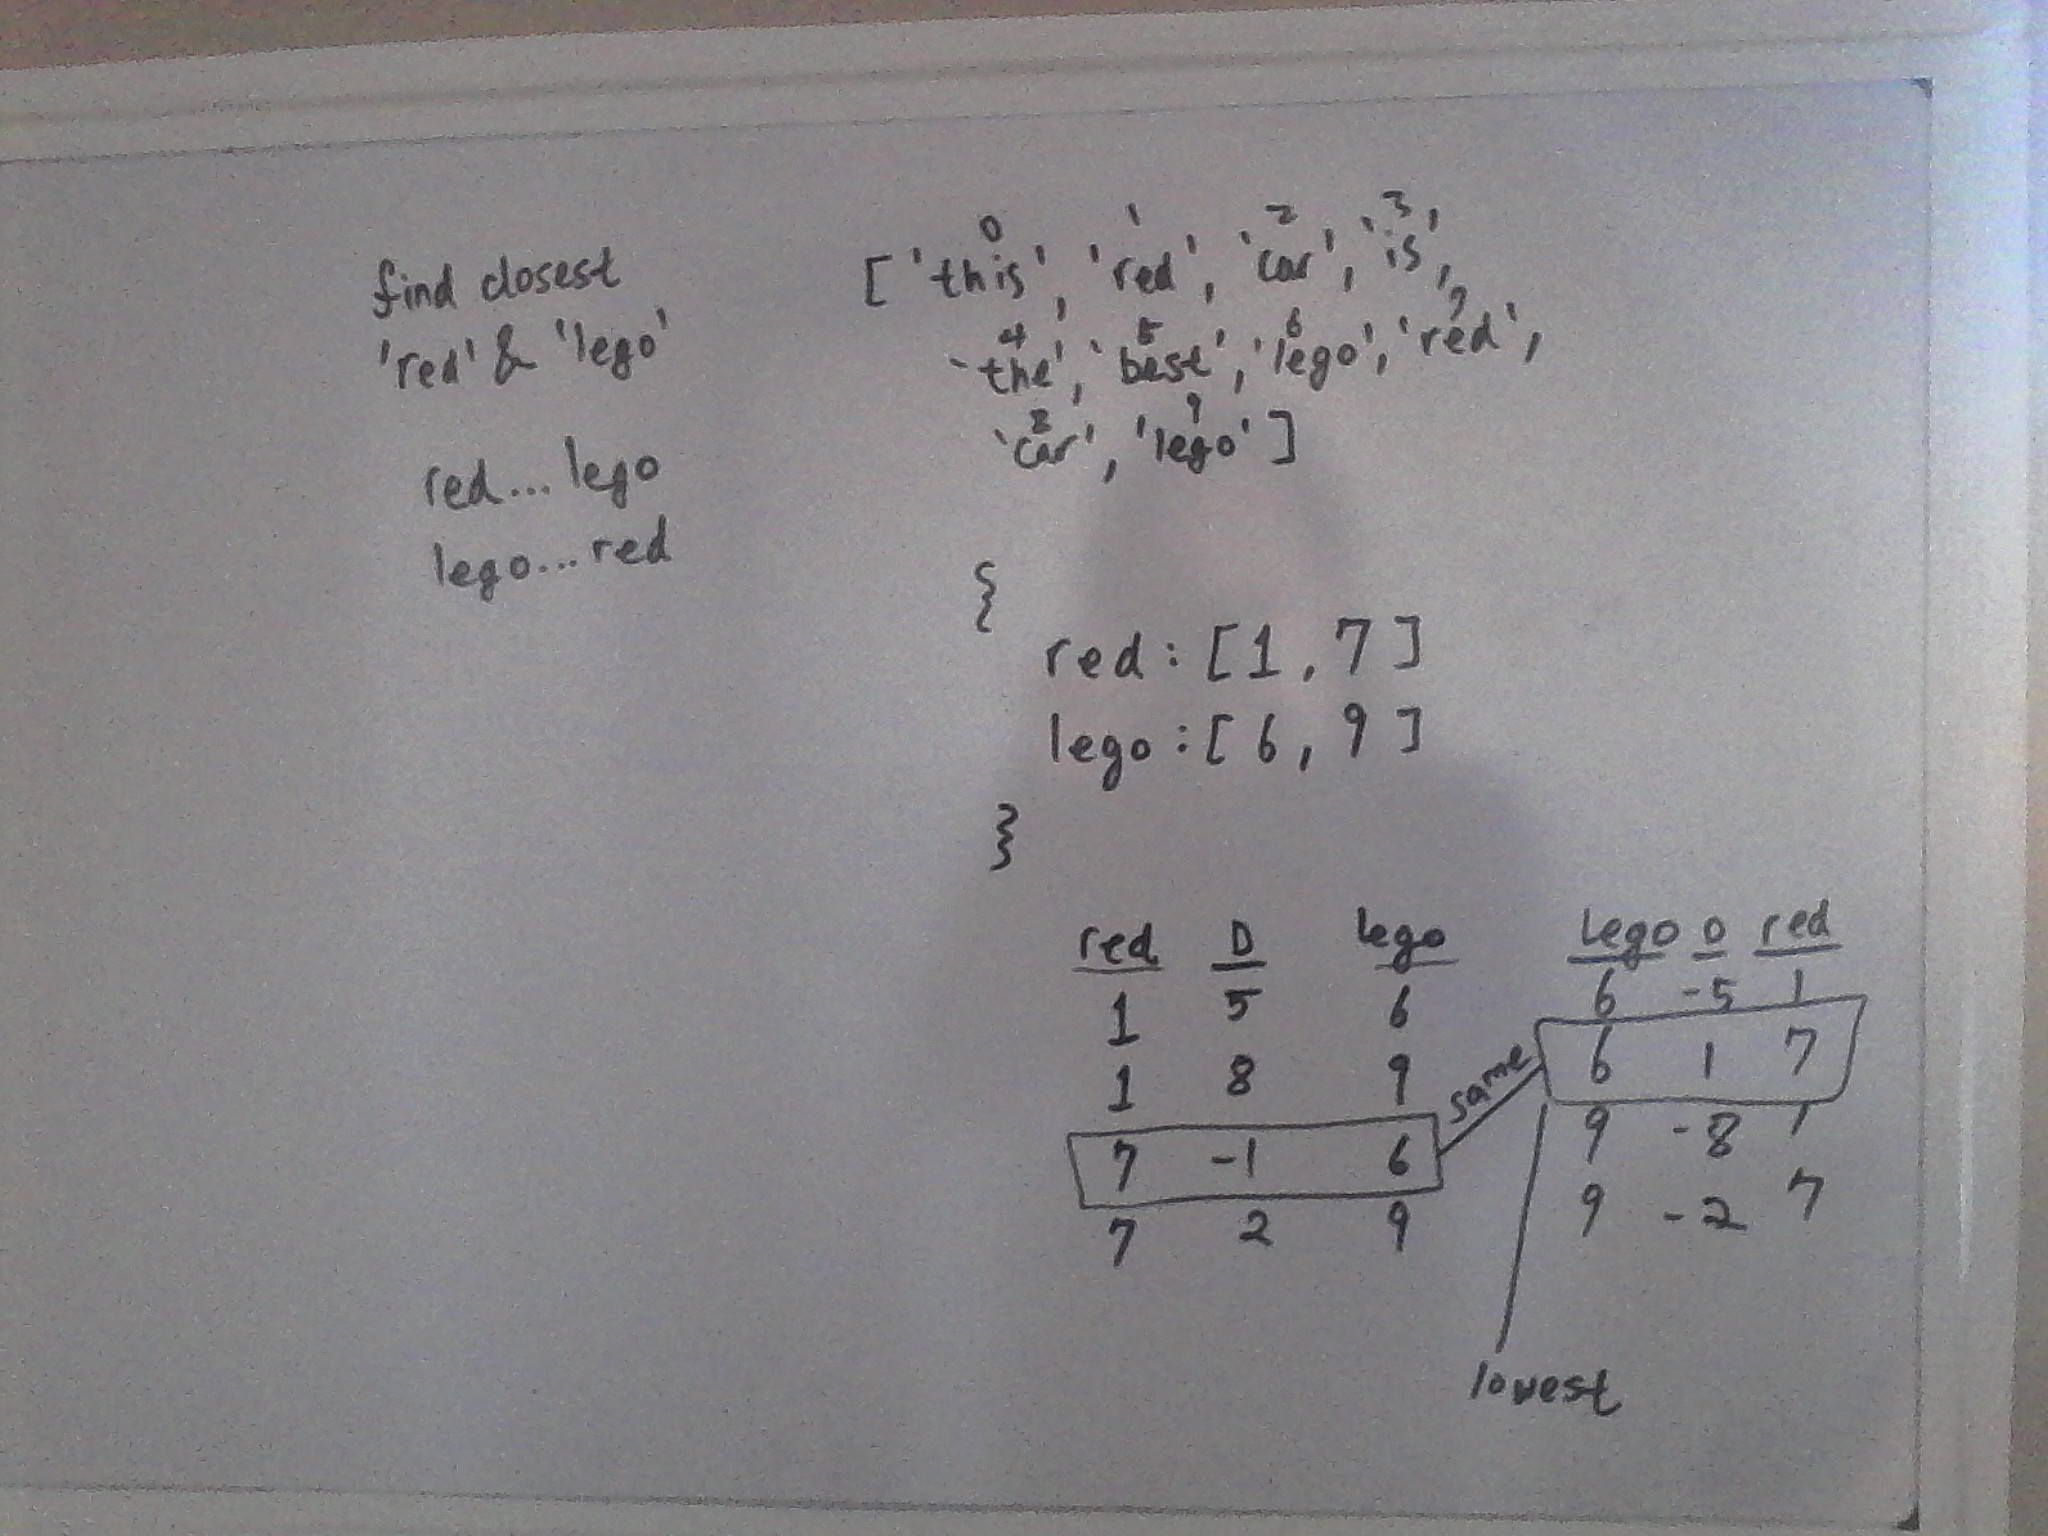 find closest
'red' & 'lego'
red...lego
lego...red
0 1 2 3
['this', 'red', 'car', 'is',
4 5 6 7
'the', 'best', 'lego', 'red',
8 9
'car', 'lego']
{
red: [1, 7]
lego: [6, 9]
}
red D lego
1 5 6
1 8 9
7 -1 6
7 2 9
same
Lego D red
6 -5 1
6 1 7
9 -8 1
9 -2 7
lowest